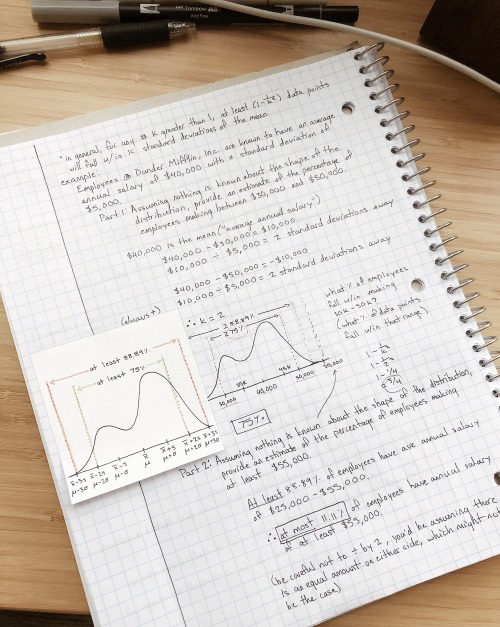 Tombow
• in general, for any # k greater than 1, at least (1-1/k²) data points
will fall w/in k standard deviations of the mean
example:
Employees @ Dunder Mifflin, Inc. are known to have an average
annual salary of $40,000 with a standard deviation of
$5,000.
Part 1: Assuming nothing is known about the shape of the
distribution, provide an estimate of the percentage of
employees making between $30,000 and $50,000.
$40,000 is the mean ("average annual salary")
$40,000 - $30,000 = $10,000
$10,000 ÷ $5,000 = 2 standard deviations away
$40,000 - $50,000 = -$10,000
$10,000 ÷ $5,000 = 2 standard deviations away
(always +)
∴ k = 2
what % of employees
fall w/in making
30k-50k?
(what % of data points
fall w/in that range)
≥ 88.89%
≥ 75%
35k
45k
30,000
40,000
50,000
55,000
1 - 1/k²
1 - 1/2²
1 - 1/4
= 3/4
75%
at least 88.89%
at least 75%
x̄-3s x̄-2s x̄-s x̄ x̄+s x̄+2s x̄+3s
μ-3σ μ-2σ μ-σ μ μ+σ μ+2σ μ+3σ
Part 2: Assuming nothing is known about the shape of the distribution,
provide an estimate of the percentage of employees making
at least $55,000.
At least 88.89% of employees have ave annual salary
of $25,000 - $55,000.
∴ at most 11.11% of employees have annual salary
of at least $55,000.
(be careful not to ÷ by 2, you'd be assuming there
is an equal amount on either side, which might not
be the case)